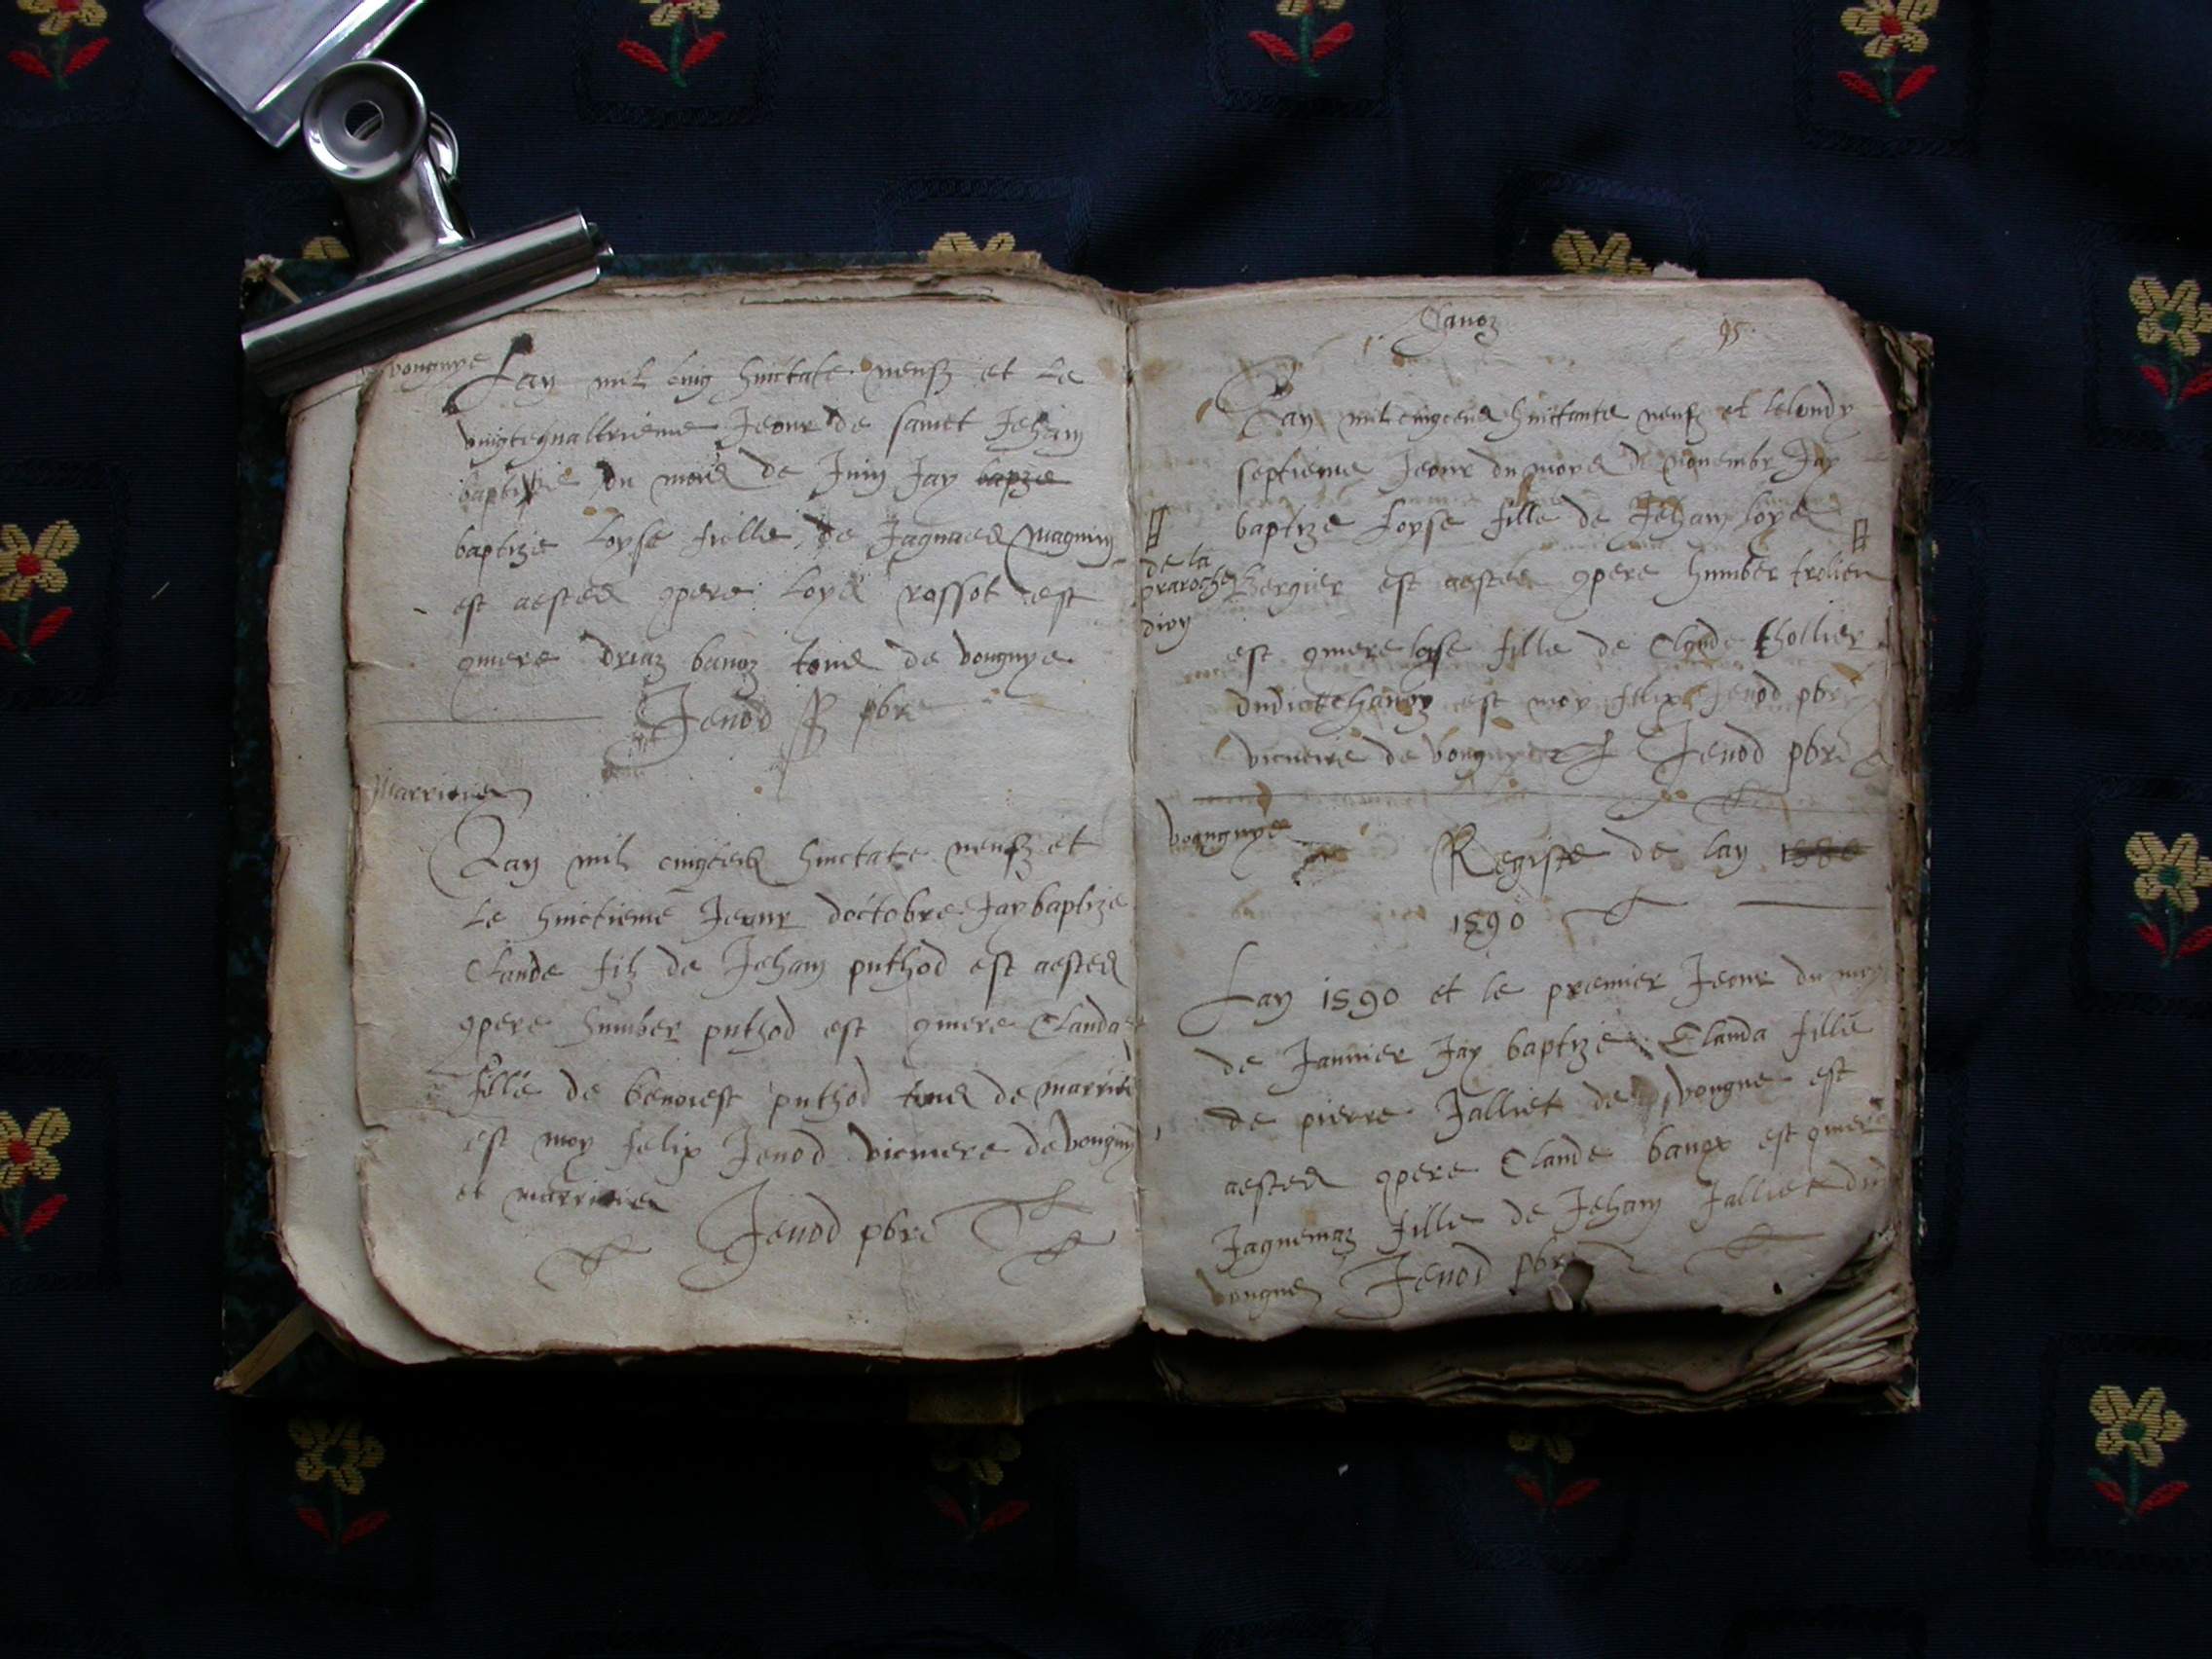 vougnye
Lan mil cinq huictate neufz et Le
vingtehuattrieme Jeour de sainct Jehan
baptiste du mois de Juin Jay bapze
baptize Loyse fielle de Jaques Magnin
est aestes gpere Loys rossot est
gmere driaz banoz tous de vougnye
Jenod pbre
Marrinies
Lan mil cinqcens huictate neufz et
Le huictieme Jeour doctobre Jay baptize
Claude filz de Jehan puthod est aestes
gpere humber puthod est gmere Clauda
fille de benoiest puthod tous de
est moy felix Jenod vicuiere de vougny
et marrinies
Jenod pbre
Chanoz
95
Lan mil cinqcens huittante neufz et le londy
septieme Jeour du moys de nouembr Jay
baptize Loyse fille de Jehan loys
de la
praroche
diuy
Bergier est aestes gpere humber trolieu
est gmere loyse fille de Claude thollier
dudict chanoz est moy fellix Jenod pbr
vicueire de vougnye Jenod pbre
vougnye
Registe de lan
1590
Lan 1590 et le premier Jeour du moy
de Januier Jay baptize Clauda fille
de pierre Jalliet de vougne est
aestes gpere Claude banoz est gmere
Jaquemaz fille de Jehan Jalliet du
vougnes Jenod pbre